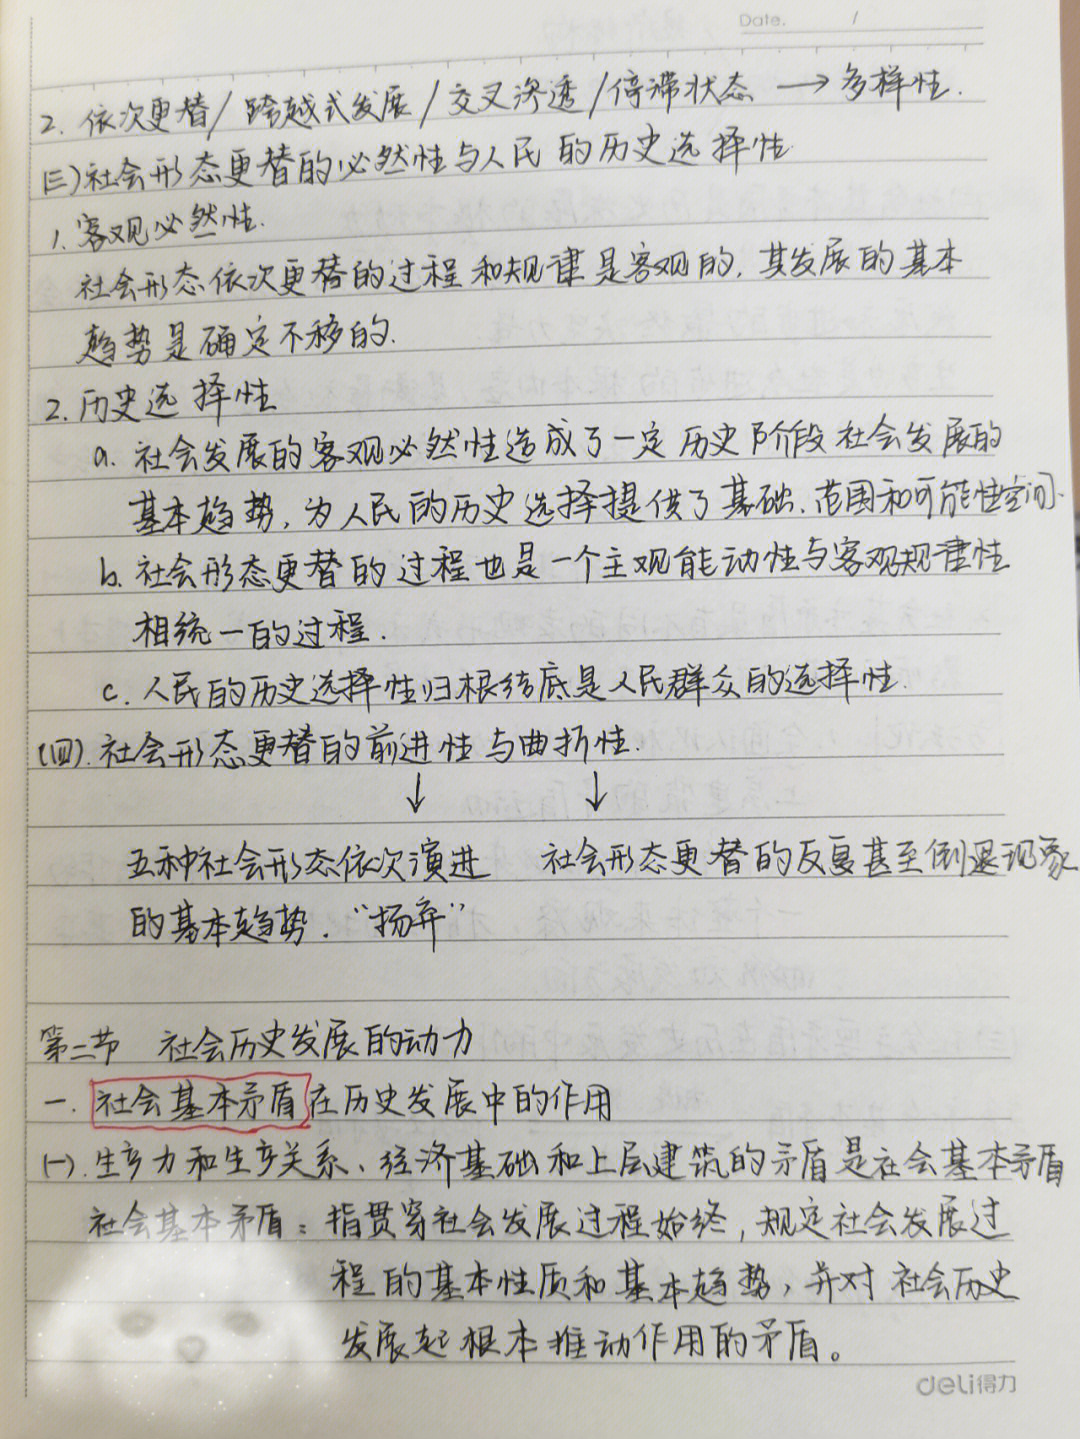 Date. /
2. 依次更替/跨越式发展/交叉渗透/停滞状态 → 多样性.
(三)社会形态更替的必然性与人民的历史选择性
1. 客观必然性.
社会形态依次更替的过程和规律是客观的, 其发展的基本
趋势是确定不移的.
2. 历史选择性
a. 社会发展的客观必然性造成了一定历史阶段社会发展的
基本趋势, 为人民的历史选择提供了基础、范围和可能性空间.
b. 社会形态更替的过程也是一个主观能动性与客观规律性
相统一的过程.
c. 人民的历史选择性归根结底是人民群众的选择性.
(四). 社会形态更替的前进性与曲折性.
↓ ↓
五种社会形态依次演进 社会形态更替的反复甚至倒退现象
的基本趋势. “扬弃”
第二节 社会历史发展的动力
一. 社会基本矛盾在历史发展中的作用
(一). 生产力和生产关系、经济基础和上层建筑的矛盾是社会基本矛盾
社会基本矛盾: 指贯穿社会发展过程始终, 规定社会发展过
程的基本性质和基本趋势, 并对社会历史
发展起根本推动作用的矛盾。
deli得力